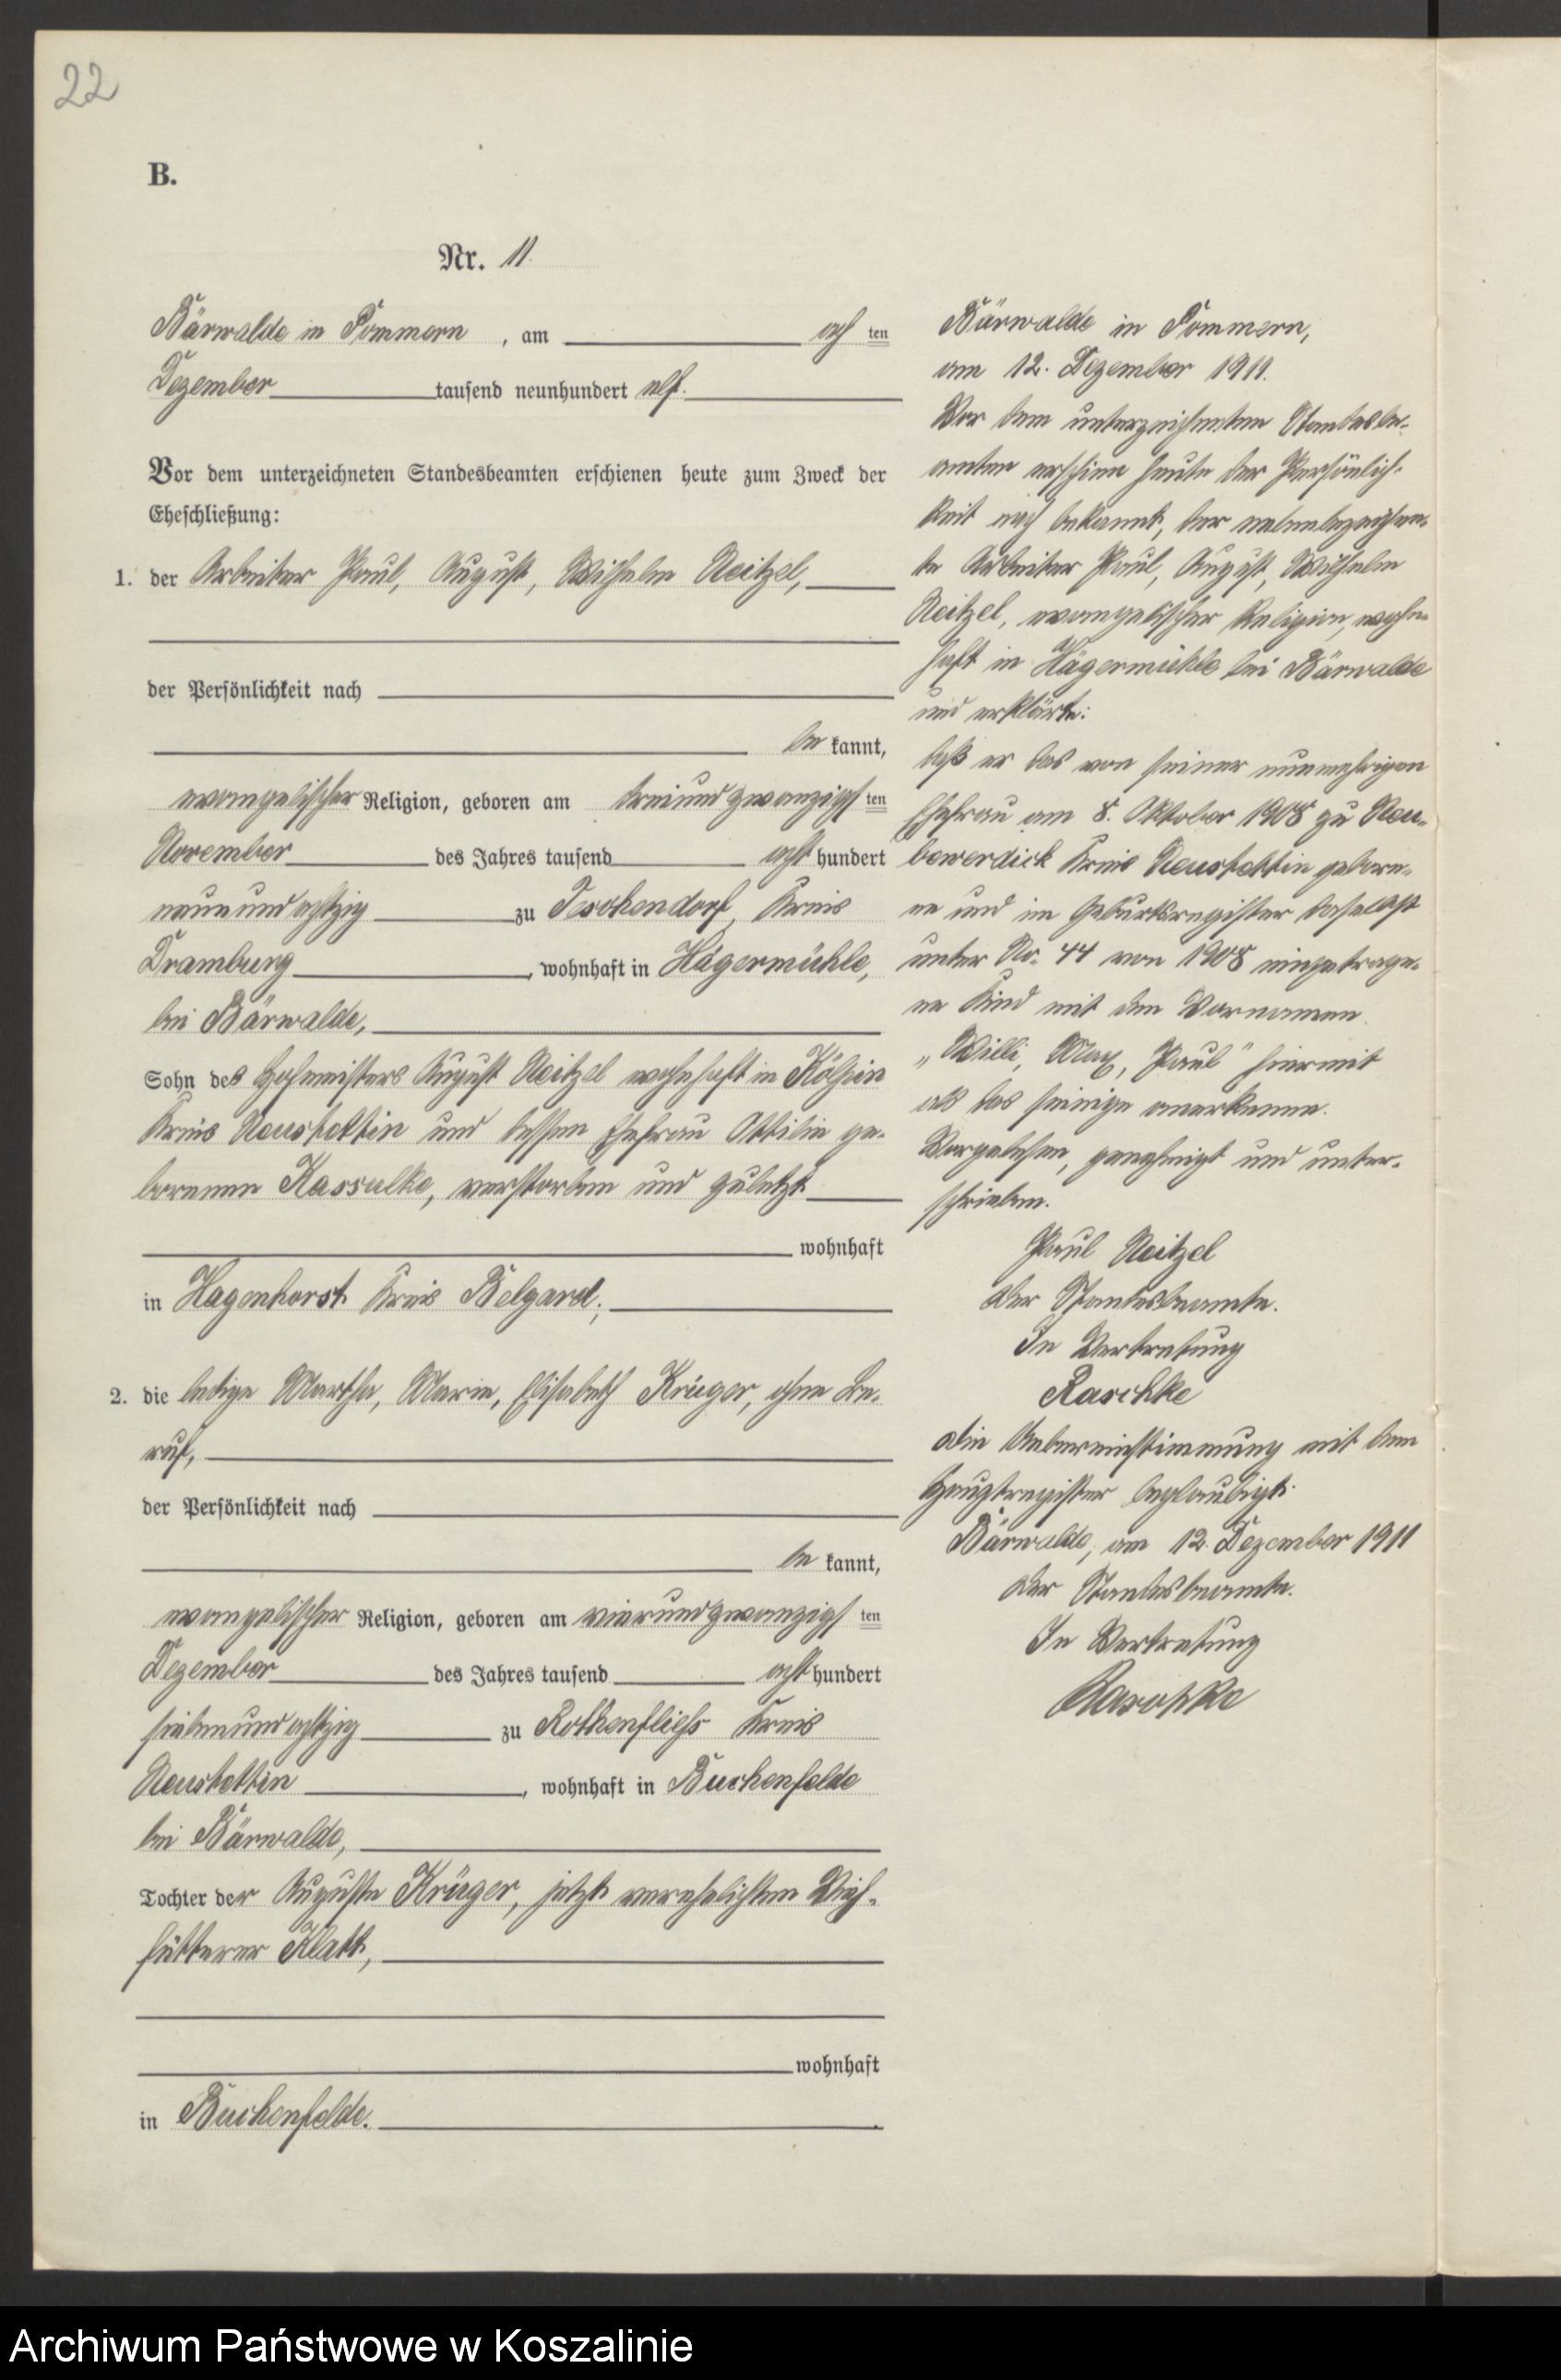 22
B.
Nr. 11.
Bärwalde in Pommern, am ach ten
Dezember tausend neunhundert elf.
Vor dem unterzeichneten Standesbeamten erschienen heute zum Zweck der
Eheschließung:
1. der Arbeiter Paul, August, Wilhelm Neitzel,
der Persönlichkeit nach
be kannt,
evangelischer Religion, geboren am dreiundzwanzigs ten
November des Jahres tausend acht hundert
neunundachtzig zu Teschendorf, Kreis
Dramburg, wohnhaft in Hägermühle,
bei Bärwalde,
Sohn des Hofmeisters August Neitzel wohnhaft in Kölpin
Kreis Neustettin und dessen Ehefrau Ottilie ge-
borenen Kassulke, verstorben und zuletzt
wohnhaft
in Hagenhorst Kreis Belgard;
2. die ledige Martha, Marie, Elisabeth Krüger, ohne Be-
ruf,
der Persönlichkeit nach
be kannt,
evangelischer Religion, geboren am vierundzwanzigs ten
Dezember des Jahres tausend acht hundert
siebenundachtzig zu Rothenfliess Kreis
Neustettin, wohnhaft in Buchenfelde
bei Bärwalde,
Tochter der Auguste Krüger, jetzt verehelichten Vieh-
fütterer Klatt,
wohnhaft
in Buchenfelde.
Bärwalde in Pommern,
am 12. Dezember 1911.
Vor dem unterzeichneten Standesbe-
amten erschien heute der Persönlich-
keit nach bekannt, der nebenbezeichne-
te Arbeiter Paul, August, Wilhelm
Neitzel, evangelischer Religion, wohn-
haft in Hägermühle bei Bärwalde
und erklärte:
daß er das von seiner nunmehrigen
Ehefrau am 8. Oktober 1908 zu Neu-
bewerdick Kreis Neustettin gebore-
ne und im Geburtsregister daselbst
unter No. 44 von 1908 eingetrage-
ne Kind mit den Vornamen
„Willi, Max, Paul" hiermit
als das seinige anerkenne.
Vorgelesen, genehmigt und unter-
schrieben.
Paul Neitzel
Der Standesbeamte.
In Vertretung
Raschke
Die Uebereinstimmung mit dem
Hauptregister beglaubigt.
Bärwalde, am 12. Dezember 1911
Der Standesbeamte.
In Vertretung
Raschke
Archiwum Państwowe w Koszalinie